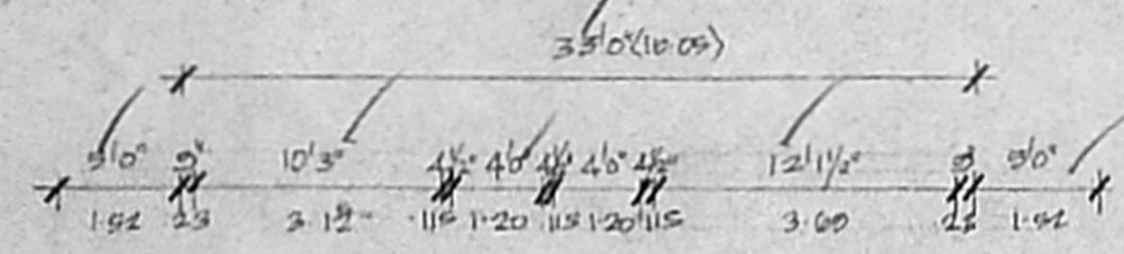 33'0"(10.05)
5'0" 9" 10'3" 4½" 4'0" 4½" 4'0" 4½" 12'1½" 9" 5'0"
1.52 .23 .115 1.20 .115 1.20 .115 3.69 1.52